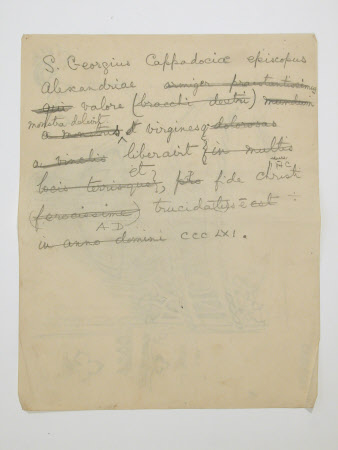 S. Georgius Cappadociæ episcopus
Alexandriae armiger
qui valore (bracchi dextri) mundum
monstra delevit
a monstris et virgines dolorosas
a vinclis liberavit {in multis
et} HAC
locis terrisque}, pro fide christ
(ferocissime) trucidatus est
A.D.
in anno domini CCCLXI.